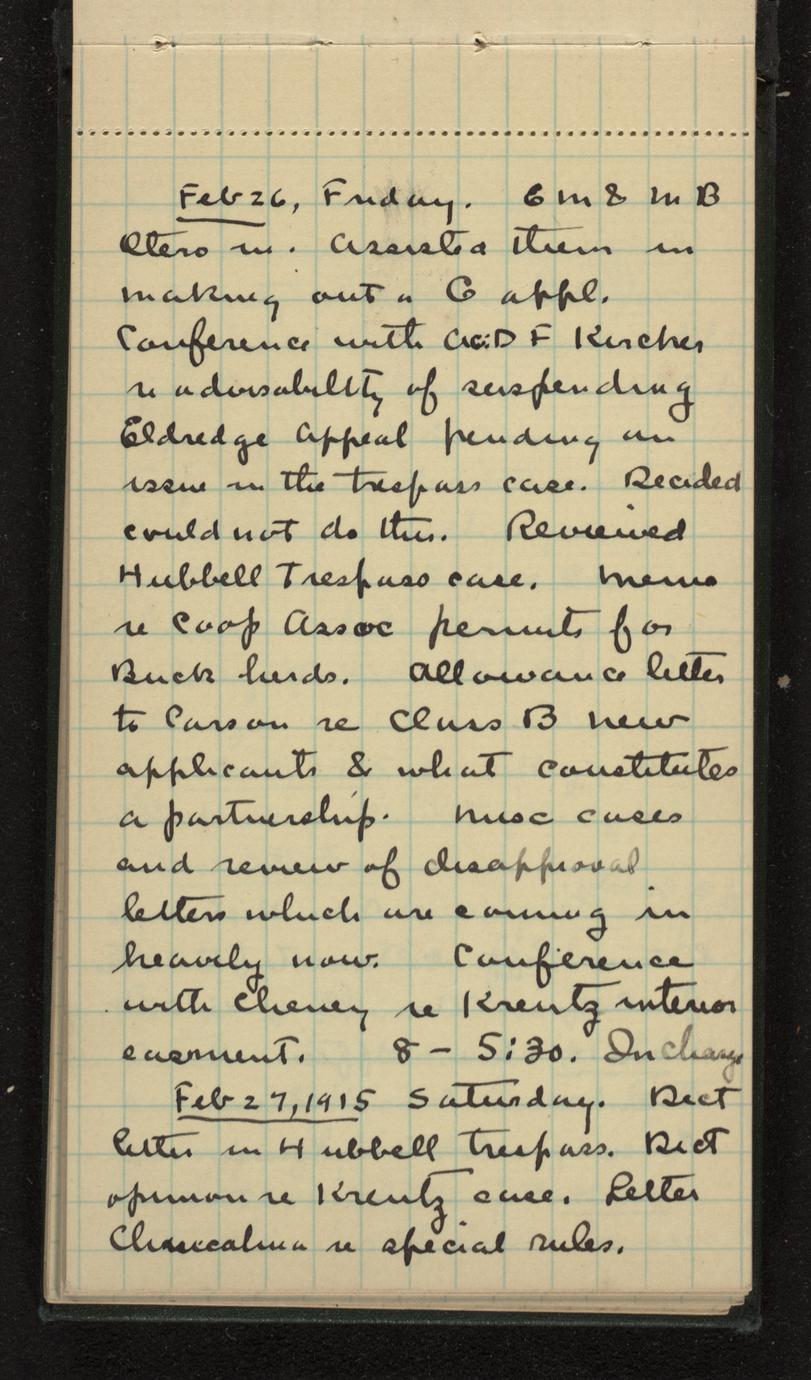 Feb 26, Friday. E M & M B
Otero in. Assisted them in
making out a G appl.
Conference with D F Kircher
re advisability of suspending
Eldredge Appeal pending an
issue in the trespass case. Decided
could not do this. Reviewed
Hubbell Trespass case. Memo
re Coop Assoc permits for
Buck herds. Allowance letter
to Carson re Class B new
applicants & what constitutes
a partnership. Misc cases
and review of disapproval
letters which are coming in
heavily now. Conference
with Cheney re Krentz interior
easment. 8 - 5:30. In charge
Feb 27, 1915 Saturday. Dict
letter in Hubbell trespass. Dict
opinion re Krentz case. Letter
re special rules.